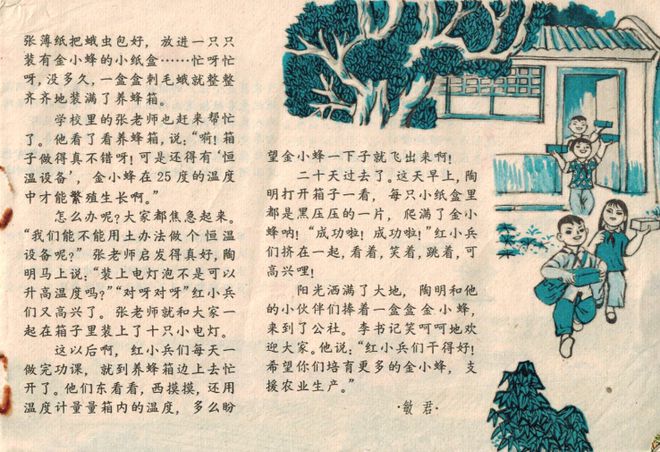 张薄纸把蛾虫包好，放进一只只
装有金小蜂的小纸盒……忙呀忙
呀，没多久，一盒盒刺毛蛾就整整
齐齐地装满了养蜂箱。
学校里的张老师也赶来帮忙
了。他看了看养蜂箱，说：“嗬！箱
子做得真不错呀！可是还得有‘恒
温设备’，金小蜂在25度的温度
中才能繁殖生长啊。”
怎么办呢？大家都焦急起来。
“我们能不能用土办法做个恒温
设备呢？”张老师启发得真好，陶
明马上说：“装上电灯泡不是可以
升高温度吗？”“对呀对呀”红小兵
们又高兴了。张老师就和大家一
起在箱子里装上了十只小电灯。
这以后啊，红小兵们每天一
做完功课，就到养蜂箱边上去忙
开了。他们东看看，西摸摸，还用
温度计量量箱内的温度，多么盼
望金小蜂一下子就飞出来啊！
二十天过去了。这天早上，陶
明打开箱子一看，每只小纸盒里
都是黑压压的一片，爬满了金小
蜂呐！“成功啦！成功啦！”红小兵
们挤在一起，看着，笑着，跳着，可
高兴哩！
阳光洒满了大地，陶明和他
的小伙伴们捧着一盒盒金小蜂，
来到了公社。李书记笑呵呵地欢
迎大家。他说：“红小兵们干得好！
希望你们培育更多的金小蜂，支
援农业生产。”
·敏君·